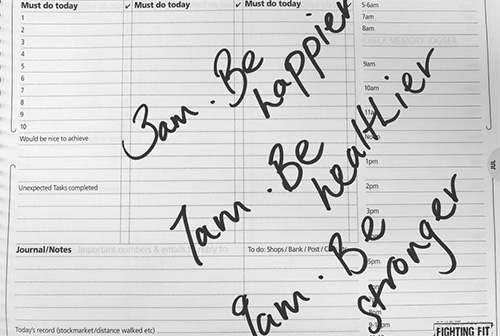 Must do today ✓ Must do today ✓ Must do today
5-6am
1
7am
2
8am
3
CHECK MEMORY JOGGER
4
5
9am
6
7
10am
8
9
11am
10
Noon
Would be nice to achieve
1pm
Unexpected Tasks completed
2pm
3pm
3am. Be
happier
7am. Be
healthier
9am. Be
stronger
JUL
Journal/Notes
Important numbers & emails
reply to.
To do: Shops / Bank / Post /
5pm
6pm
Today's record (stockmarket/distance walked etc)
FIGHTING FIT